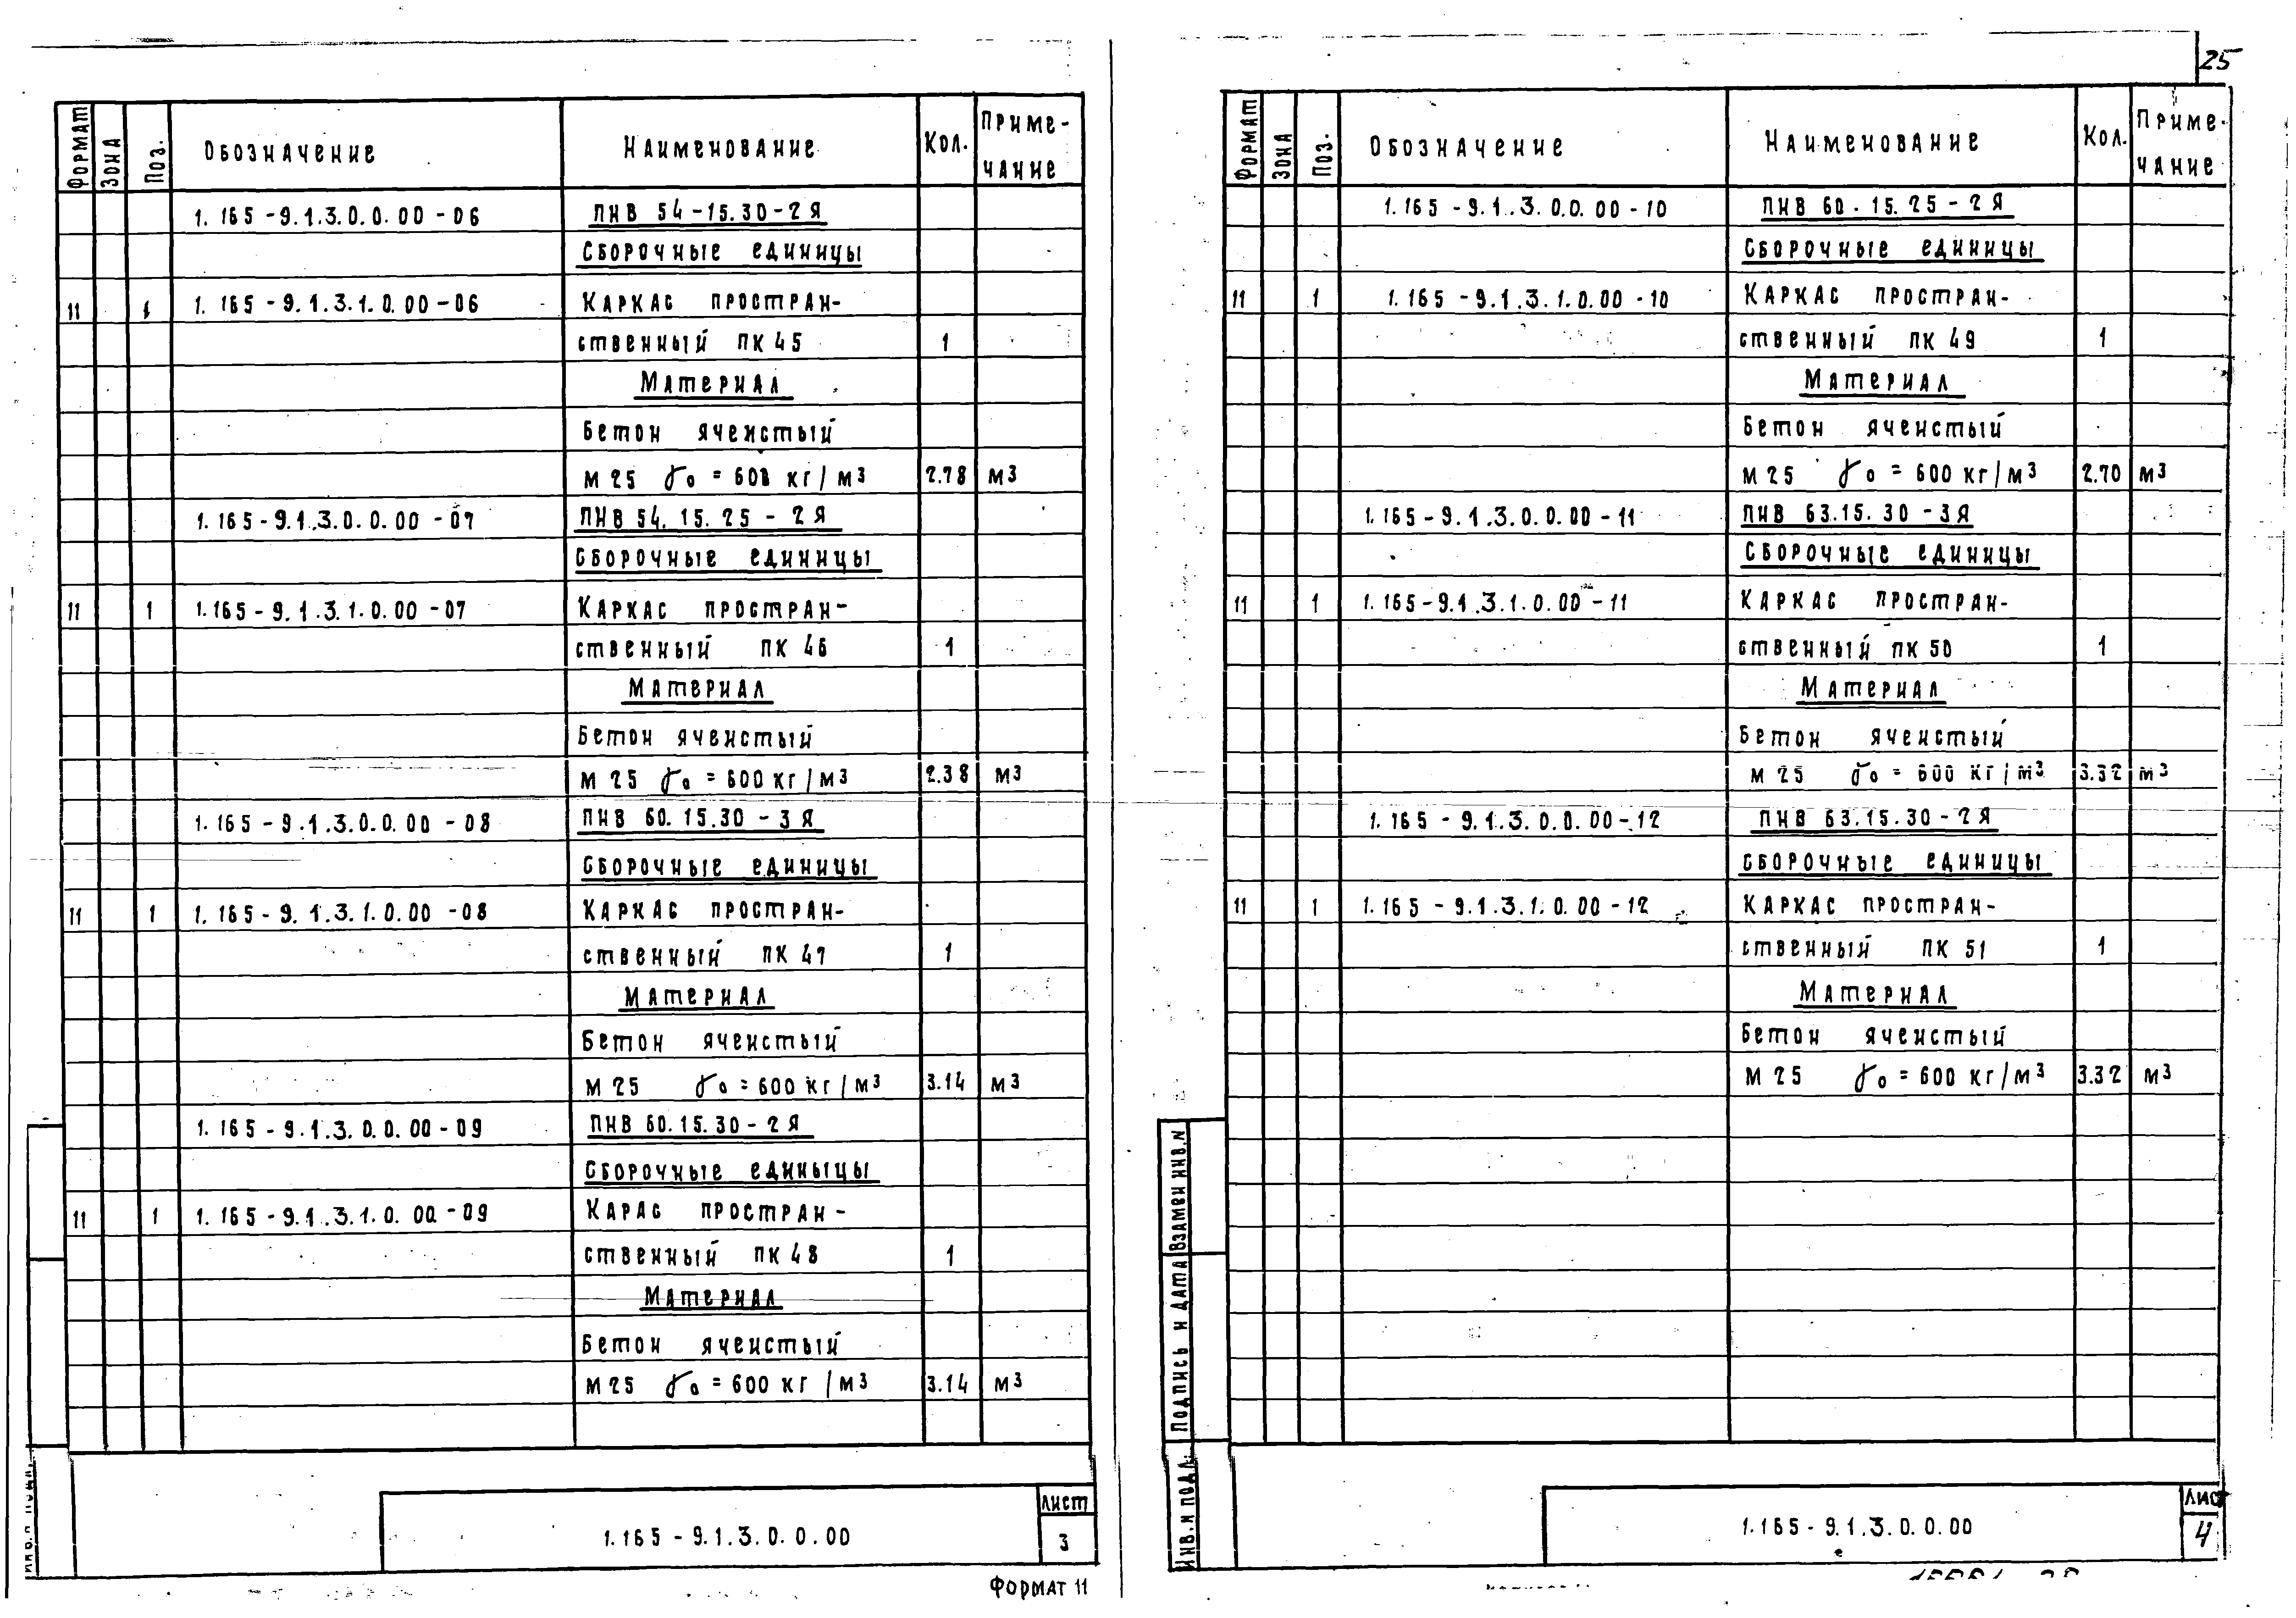 25
ФОРМАТ ЗОНА ПОЗ. ОБОЗНАЧЕНИЕ НАИМЕНОВАНИЕ КОЛ. ПРИМЕ-
ЧАНИЕ
1.165-9.1.3.0.0.00-06 ПНВ 54-15.30-2Я
СБОРОЧНЫЕ ЕДИНИЦЫ
11 1 1.165-9.1.3.1.0.00-06 КАРКАС ПРОСТРАН-
СТВЕННЫЙ ПК 45 1
МАТЕРИАЛ
БЕТОН ЯЧЕИСТЫЙ
М 25 γ₀ = 600 КГ/М³ 2.78 М³
1.165-9.1.3.0.0.00-07 ПНВ 54.15.25-2Я
СБОРОЧНЫЕ ЕДИНИЦЫ
11 1 1.165-9.1.3.1.0.00-07 КАРКАС ПРОСТРАН-
СТВЕННЫЙ ПК 46 1
МАТЕРИАЛ
БЕТОН ЯЧЕИСТЫЙ
М 25 γ₀ = 600 КГ/М³ 2.38 М³
1.165-9.1.3.0.0.00-08 ПНВ 60.15.30-3Я
СБОРОЧНЫЕ ЕДИНИЦЫ
11 1 1.165-9.1.3.1.0.00-08 КАРКАС ПРОСТРАН-
СТВЕННЫЙ ПК 47 1
МАТЕРИАЛ
БЕТОН ЯЧЕИСТЫЙ
М 25 γ₀ = 600 КГ/М³ 3.14 М³
1.165-9.1.3.0.0.00-09 ПНВ 60.15.30-2Я
СБОРОЧНЫЕ ЕДИНЫЦЫ
11 1 1.165-9.1.3.1.0.00-09 КАРАС ПРОСТРАН-
СТВЕННЫЙ ПК 48 1
МАТЕРИАЛ
БЕТОН ЯЧЕИСТЫЙ
М 25 γ₀ = 600 КГ/М³ 3.14 М³
1.165-9.1.3.0.0.00
ЛИСТ
3
ФОРМАТ 11
ФОРМАТ ЗОНА ПОЗ. ОБОЗНАЧЕНИЕ НАИМЕНОВАНИЕ КОЛ. ПРИМЕ-
ЧАНИЕ
1.165-9.1.3.0.0.00-10 ПНВ 60.15.25-2Я
СБОРОЧНЫЕ ЕДИНИЦЫ
11 1 1.165-9.1.3.1.0.00-10 КАРКАС ПРОСТРАН-
СТВЕННЫЙ ПК 49 1
МАТЕРИАЛ
БЕТОН ЯЧЕИСТЫЙ
М 25 γ₀ = 600 КГ/М³ 2.70 М³
1.165-9.1.3.0.0.00-11 ПНВ 63.15.30-3Я
СБОРОЧНЫЕ ЕДИНИЦЫ
11 1 1.165-9.1.3.1.0.00-11 КАРКАС ПРОСТРАН-
СТВЕННЫЙ ПК 50 1
МАТЕРИАЛ
БЕТОН ЯЧЕИСТЫЙ
М 25 γ₀ = 600 КГ/М³ 3.32 М³
1.165-9.1.3.0.0.00-12 ПНВ 63.15.30-2Я
СБОРОЧНЫЕ ЕДИНИЦЫ
11 1 1.165-9.1.3.1.0.00-12 КАРКАС ПРОСТРАН-
СТВЕННЫЙ ПК 51 1
МАТЕРИАЛ
БЕТОН ЯЧЕИСТЫЙ
М 25 γ₀ = 600 КГ/М³ 3.32 М³
ВЗАМЕН ИНВ.N
ПОДПИСЬ И ДАТА
ИНВ.N ПОДЛ.
1.165-9.1.3.0.0.00
ЛИСТ
4